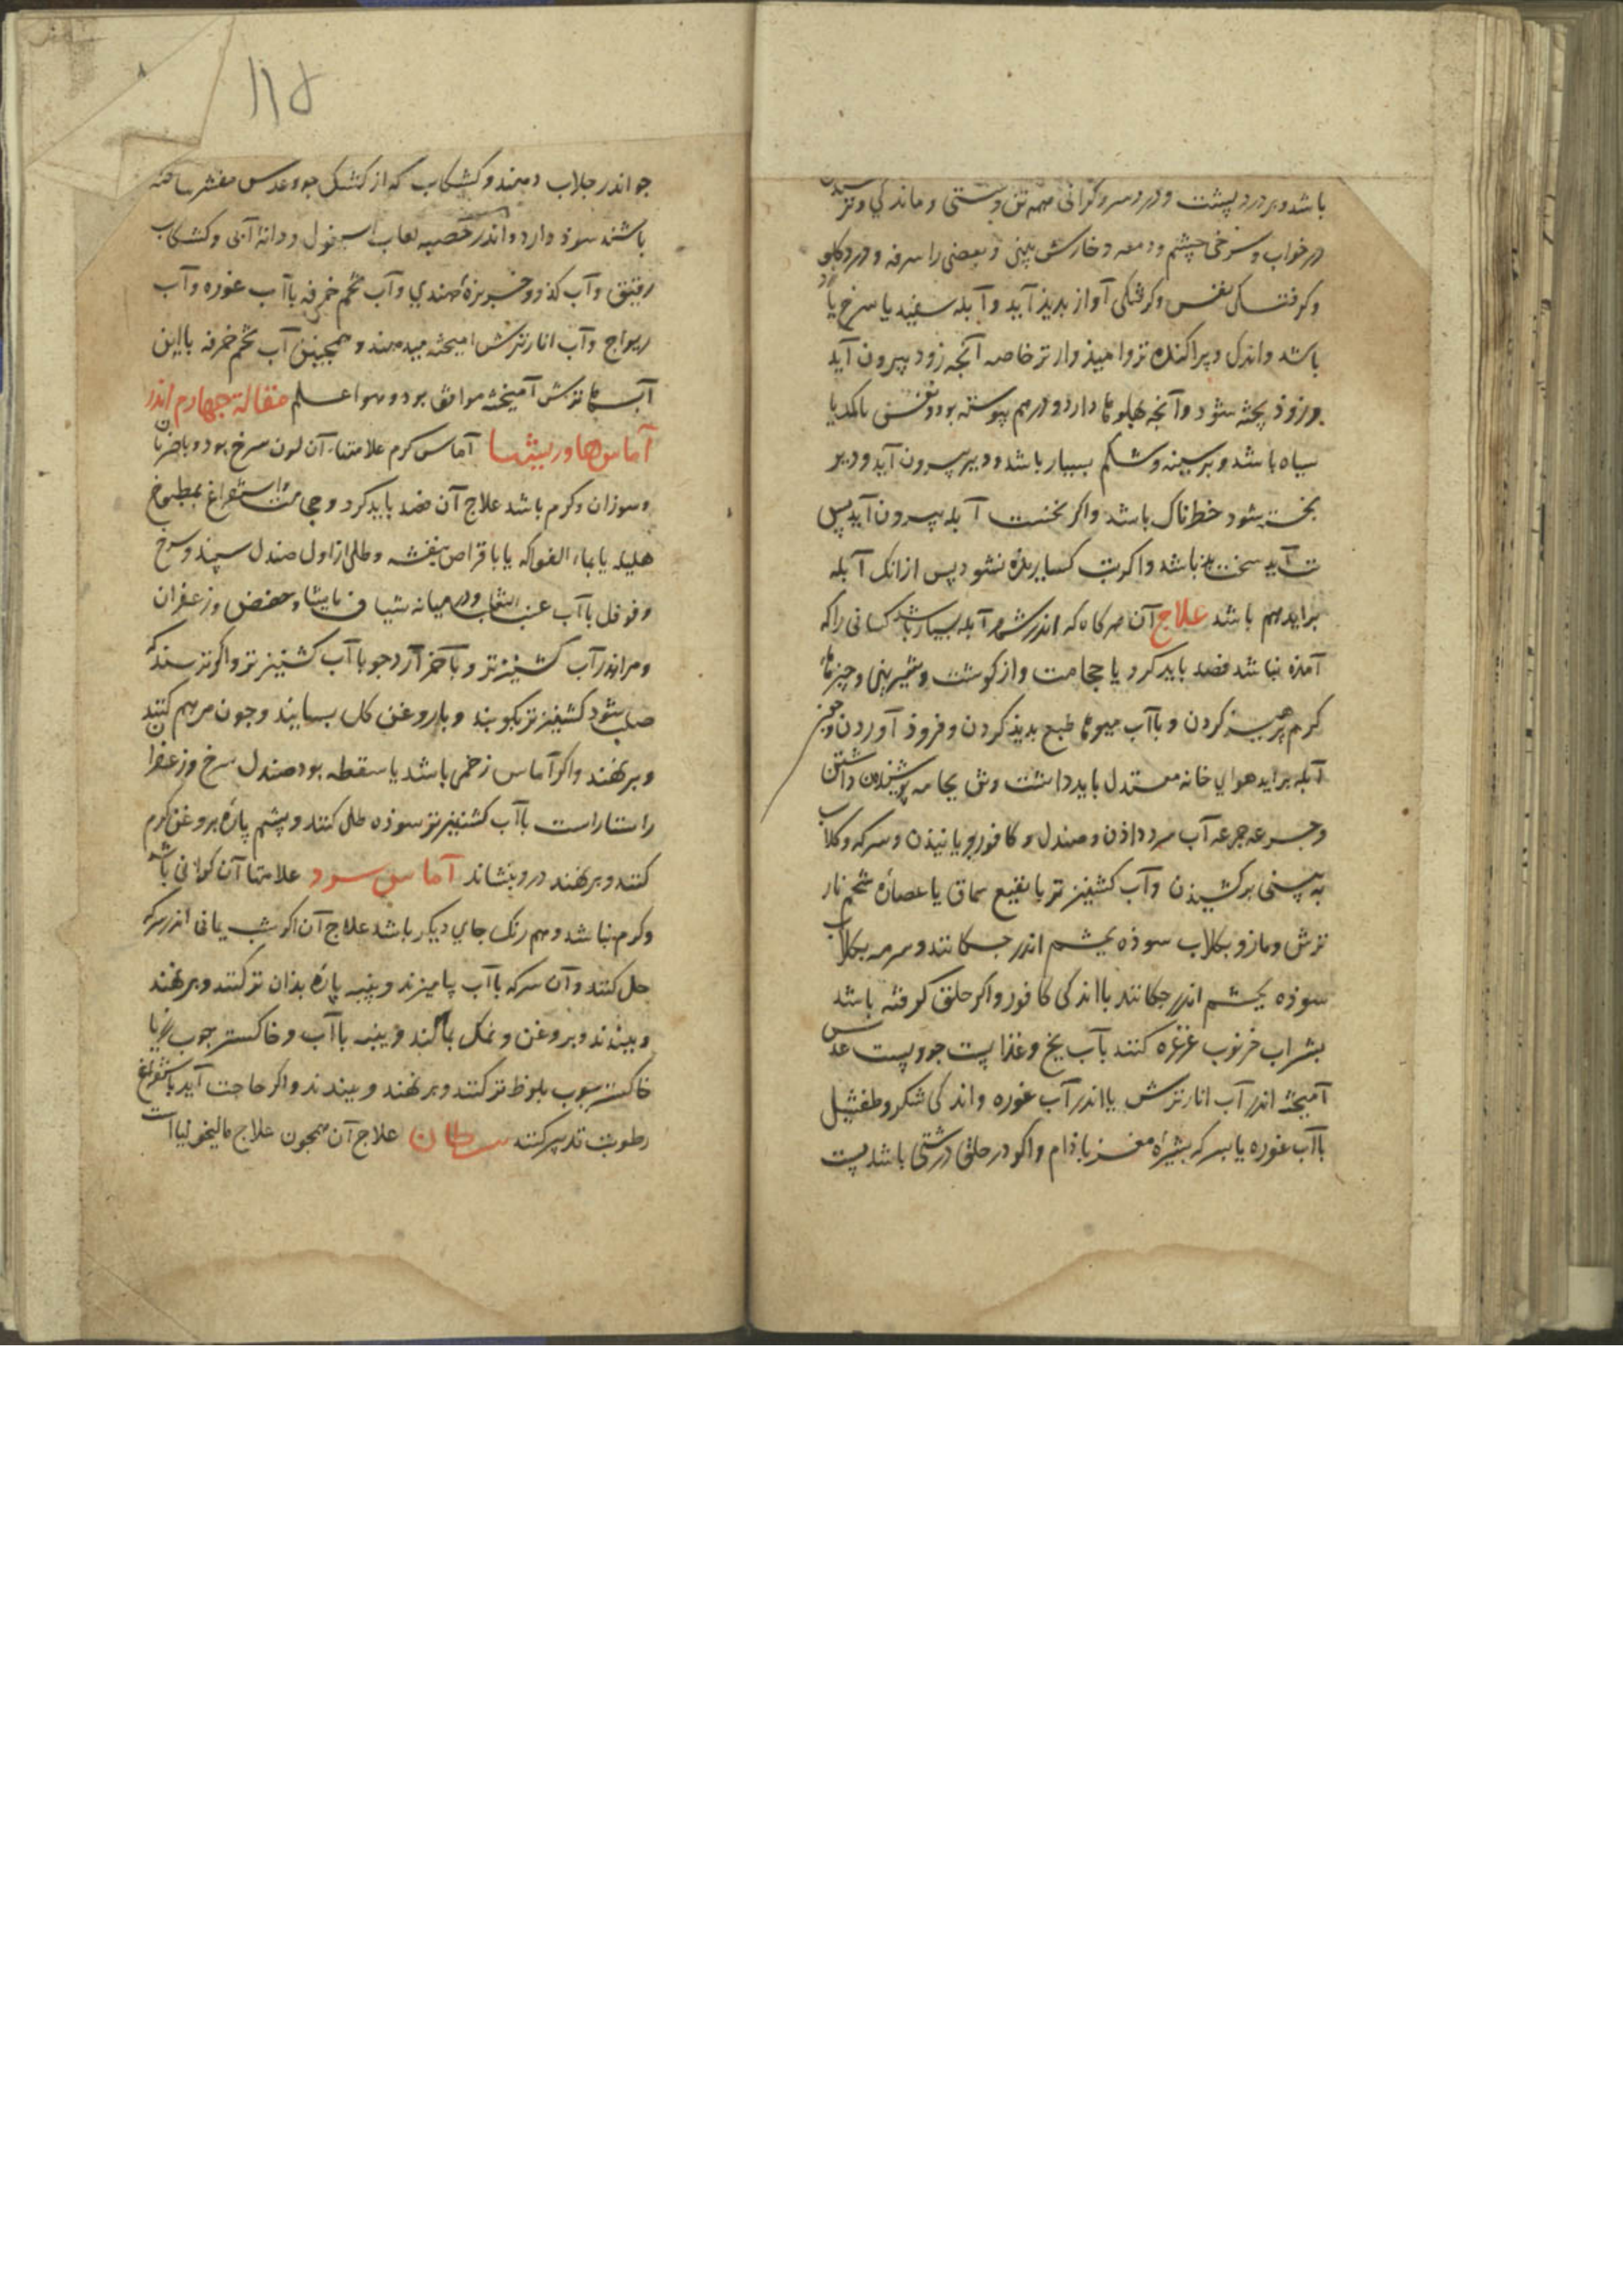 باشد و بر درد پشت و درد سر و کرانی همه تن و سستی و ماندکی و ترسیدن
در خواب و سرخی چشم و دمعه و خارش بینی و بعضی را سرفه و درد کلو
و کرفتکی نفس و کرفتکی آواز بدیذ آید و آبله سفیذ یا سرخ یا زرد
باشد و اندک و پراکنده تر و امیذوارتر خاصه آنجه زود بیرون آید
و زوذ پخته شود و آنجه بهلوها دارد و درهم پیوسته بود و بنفش یا کمد یا
سیاه باشد و بر سینه و شکم بسیار باشد و دیر بیرون آید و دیر
پخته شود خطرناک باشد و اکر نخست آبله بیرون آید پس
تب آید سخت بذ باشد و اکر تب کساریده نشود پس از انک آبله
براید هم باشد علاج آن هرکاه که اندر شهر آبله بسیار باشد کسانی را که
آمذه نباشد فصد باید کرد یا حجامت و از کوشت و شیرینی و چیزهاء
کرم پرهیز کردن و باآب میوها طبع بدیذ کردن و فروذ آوردن و جون
آبله براید هوای خانه معتدل باید داشت و تن بجامه پوشیذه داشتن
و جرعه جرعه آب سرد داذن و صندل و کافور بویانیذن و سرکه و کلاب
به بینی برکشیذن و آب کشنیز تر یا نقیع سماق یا عصاره شحم نار
ترش و مازو بکلاب سوذه بچشم اندر جکانند و سرمه بکلاب
سوذه بچشم اندر جکانند بااندکی کافور و اکر حلق کرفته باشد
بشراب خرنوب غرغره کنند بآب یخ و غذا پست جو و پست عدس
آمیخته اندر آب انار ترش یا اندر آب غوره و اندکی شکر و طفشیل
باآب غوره یا سرکه بشیراه مغز باذام و اکر در حلق درشتی باشد پست
۱۱۵
جو اندر جلاب دهند و کشکاب که از کشک جو و عدس مقشر ساخته
باشند سوذ دارد و اندر حصبه لعاب اسبغول و دانه آبی و کشکاب
رقیق و آب کذو و خربزه هندی و آب تخم خرفه باآب غوره و آب
ریواج و آب انار ترش امیخته میدهند و همجنین آب تخم خرفه بااین
آبهاء ترش آمیخته موافق بود و هو اعلم مقالة جهارم اندر
آماسها و ریشها آماس کرم علامتهاء آن لون سرخ بود و باضربان
و سوزان و کرم باشد علاج آن فصد باید کرد و حجامت و استفراغ بمطبوخ
هلیله یا بماء الفواکه یا باقراص بنفشه و طلی از اول صندل سپید و سرخ
و فوفل باآب عنب الثعلب و در میانه شیاف مامیثا و حضض و زعفران
و مر اندر آب کشنیز تر و بآخر آرد جو باآب کشنیز تر و اکر ترسند که
صلب شود کشنیز تر بکوبند و باروغن کل بسایند و جون مرهم کنند
و برنهند و اکر آماس زخمی باشد یا سقطه بود صندل سرخ و زعفران
راستاراست باآب کشنیز تر سوذه طلی کنند و پشم پاره بروغن کرم
کنند و برنهند درد بنشاند آماس سرد علامتها آن کرانی باشد
و کرم نباشد و هم رنک جای دیکر باشد علاج آن اکر شب یمانی اندر سرکه
حل کنند و آن سرکه باآب بیامیزند و پنبه پاره بذان تر کنند و برنهند
و ببندند و بروغن و نمک بمالند و پنبه باآب و خاکستر جوب رز یا
خاکستر جوب بلوط تر کنند و برنهند و ببندند و اکر حاجت آید باستفراغ
رطوبت تدبیر کنند سرطان علاج آن همجون علاج مالیخولیا است